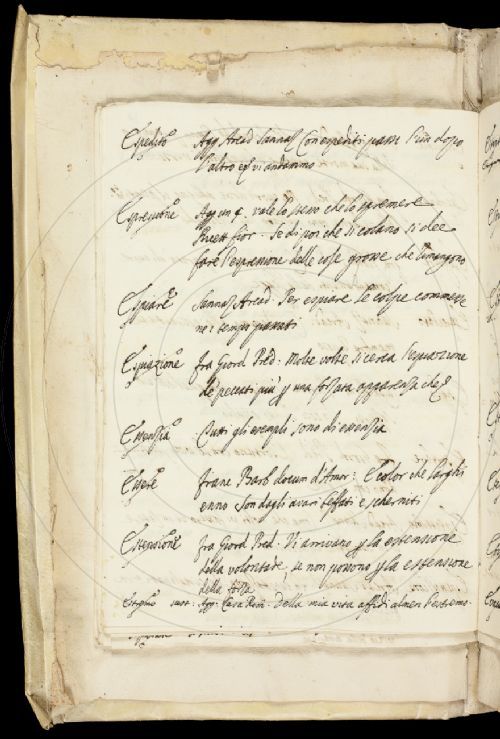 Espedito Agg Arcad Sannaz Con espediti passi l'un dopo
l'altro egl vi andammo
Espressione Agg un §. vale lo stesso che lo spremere
Ricett fior. Se di poi che si colano si dee
fare l'espressione delle cose grosse che rimangono
Espiare Sannaz Arcad. Per espiare le colpe commesse
ne i tempi passati
Espiazione fra Giord Pred. Molte volte si cerca l'espiazione
de peccati più una forzata apparenza che
Essenzia Tutti gli esempli sono di essenzia
Essere franc Barb docum d'Amor: E color che larghi
enno Son dagli avari beffati e scherniti
Estensione fra Giord Pred. Vi arrivano la estensione
della volontade, se non possono la estensione
della forza
sust. Agg. Casa Rim. Della mia vita affidi almen l'estremo